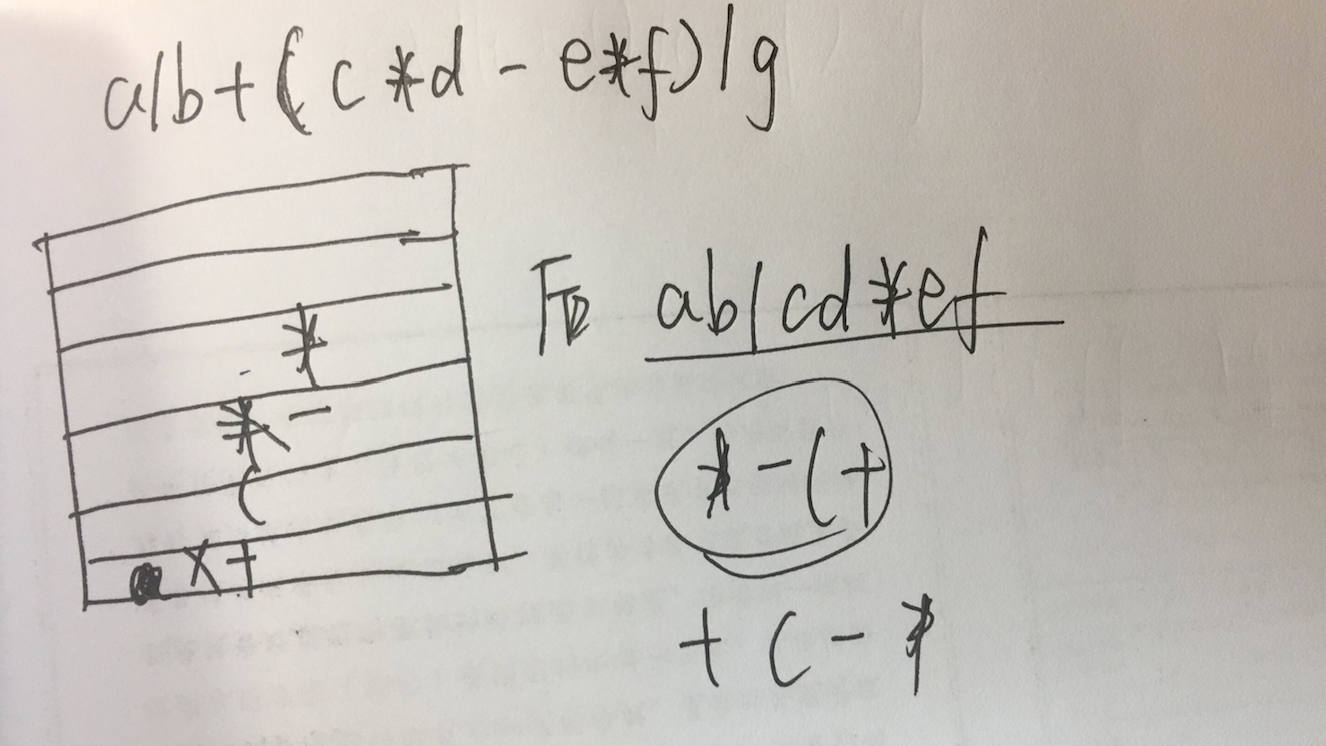 a/b+(c*d-e*f)/g
*
* -
(
x +
ab/cd*ef
*-(+
+(-*